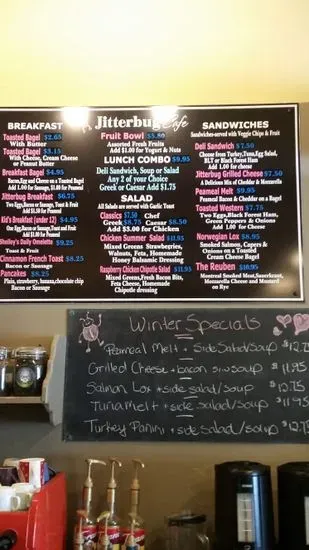 Jitterbug Cafe
BREAKFAST
Toasted Bagel $2.65
With Butter
Toasted Bagel $3.15
With Cheese, Cream Cheese
or Peanut Butter
Breakfast Bagel $4.95
Bacon,Egg and Cheese on a Toasted Bagel
Add 1.00 for Sausage, $1.00 for Peameal
Jitterbug Breakfast $6.75
Two Eggs,Bacon or Sausage, Toast & Fruit
Add $1.00 for Peameal
Kid's Breakfast (under 12) $4.95
One Egg,Bacon or Sausage, Toast and Fruit
Add $1.00 for Peameal
Shelley's Daily Omelette $9.25
Toast & Fruit
Cinnamon French Toast $8.25
Bacon or Sausage
Pancakes $8.25
Plain, strawberry, banana,chocolate chip
Bacon or Sausage
Fruit Bowl $5.80
Assorted Fresh Fruits
Add $1.00 for Yogurt & Nuts
LUNCH COMBO $9.95
Deli Sandwich, Soup or Salad
Any 2 of your Choice
Greek or Caesar Add $1.75
SALAD
All Salads are served with Garlic Toast
Classics $7.50 Chef
Greek $8.75 Caesar $8.50
Add $3.00 for Chicken
Chicken Summer Salad $11.95
Mixed Greens Strawberries,
Walnuts, Feta, Homemade
Honey Balsamic Dressing
Raspberry Chicken Chipotle Salad $11.95
Mixed Greens,Fresh Bacon Bits,
Feta Cheese, Homemade
Chipotle dressing
SANDWICHES
Sandwiches-served with Veggie Chips & Fruit
Deli Sandwich $7.50
Choose from Turkey,Tuna,Egg Salad,
BLT or Black Forest Ham
Add 1.00 for cheese
Jitterbug Grilled Cheese $7.50
A Delicious Mix of Cheddar & Mozzarella
Peameal Melt $9.95
Peameal Bacon & Cheddar on a Bagel
Toasted Western $7.75
Two Eggs,Black Forest Ham,
Green Peppers & Onions
Add 1.00 for Cheese
Norwegian Lox $8.95
Smoked Salmon, Capers
& Onions on a Toasted
Cream Cheese Bagel
The Reuben $10.95
Montreal Smoked Meat,Sauerkraut,
Mozzarella Cheese and Mustard
on Rye
Winter Specials
Peameal Melt + side Salad/soup $12.75
Grilled Cheese + bacon soup $11.95
Salmon Lox + side salad/soup $12.75
Tuna melt + side salad/soup $11.95
Turkey Panini + side salad/soup $12.75